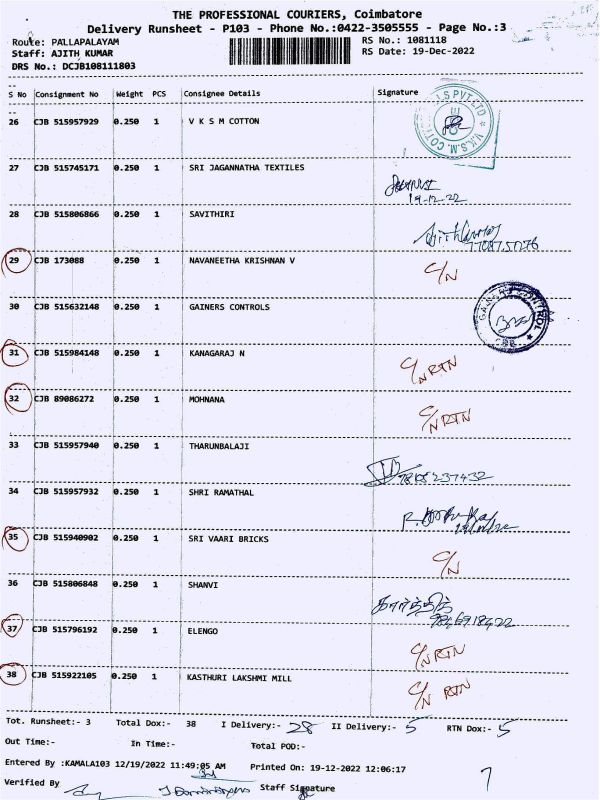 THE PROFESSIONAL COURIERS, Coimbatore
Delivery Runsheet - P103 - Phone No.:0422-3505555 - Page No.:3
Route: PALLAPALAYAM
RS No.: 1081118
Staff: AJITH KUMAR
RS Date: 19-Dec-2022
DRS No.: DCJB108111803
S No Consignment No Weight PCS Consignee Details Signature
26 CJB 515957929 0.250 1 V K S M COTTON
27 CJB 515745171 0.250 1 SRI JAGANNATHA TEXTILES
19-12-22
28 CJB 515806866 0.250 1 SAVITHIRI
29 CJB 173088 0.250 1 NAVANEETHA KRISHNAN V C/N
30 CJB 515632148 0.250 1 GAINERS CONTROLS
31 CJB 515984148 0.250 1 KANAGARAJ N C/N RTN
32 CJB 89086272 0.250 1 MOHNANA C/N RTN
33 CJB 515957940 0.250 1 THARUNBALAJI
34 CJB 515957932 0.250 1 SHRI RAMATHAL
35 CJB 515940902 0.250 1 SRI VAARI BRICKS C/N
36 CJB 515806848 0.250 1 SHANVI கார்த்திக்
37 CJB 515796192 0.250 1 ELENGO C/N RTN
38 CJB 515922105 0.250 1 KASTHURI LAKSHMI MILL C/N RTN
Tot. Runsheet:- 3 Total Dox:- 38 I Delivery:- 28 II Delivery:- 5 RTN Dox:- 5
Out Time:- In Time:- Total POD:-
Entered By :KAMALA103 12/19/2022 11:49:05 AM Printed On: 19-12-2022 12:06:17
Verified By Staff Signature